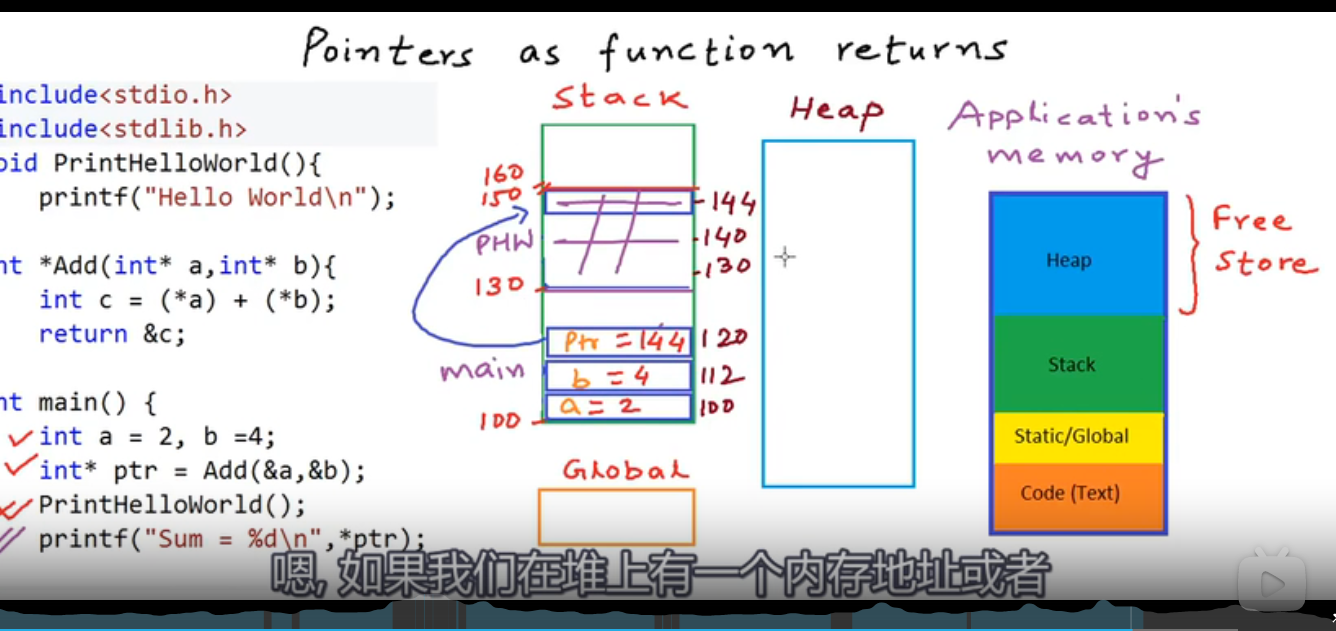 Pointers as function returns
include<stdio.h>
include<stdlib.h>
oid PrintHelloWorld(){
printf("Hello World\n");
nt *Add(int* a,int* b){
int c = (*a) + (*b);
return &c;
nt main() {
int a = 2, b =4;
int* ptr = Add(&a,&b);
PrintHelloWorld();
printf("Sum = %d\n",*ptr);
Stack
160
150
144
PHW
140
130
130
Ptr = 144
120
main
b = 4
112
a = 2
100
100
Global
Heap
Application's
memory
Heap
Free
Store
Stack
Static/Global
Code (Text)
嗯, 如果我们在堆上有一个内存地址或者